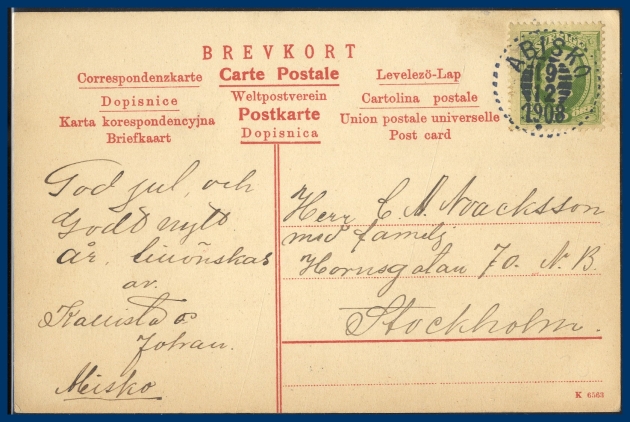 BREVKORT
Correspondenzkarte Carte Postale Levelezö-Lap
Dopisnice Weltpostverein Cartolina postale
Karta korespondencyjna Postkarte Union postale universelle
Briefkaart Dopisnica Post card
ABISKO
9
12
1908
God jul, och
Godt nytt
år. tillönskas
av.
Kallista o
Johan.
Meisko
Herr C. A. Noacksson
med familj
Hornsgatan 70. N. B.
Stockholm.
K 6563